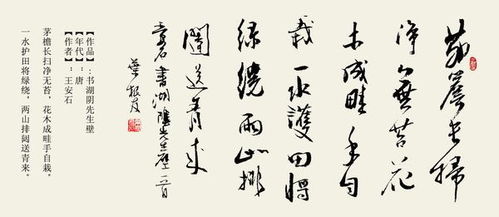 茅簷長掃
净無苔花
木成畦手自
栽一水護田將
綠繞兩山排
闥送青来
安石書湖陰先生壁一首
葉根友
【作品】:书湖阴先生壁
【年代】:唐
【作者】:王安石
茅檐长扫净无苔,花木成畦手自栽。
一水护田将绿绕,两山排闼送青来。